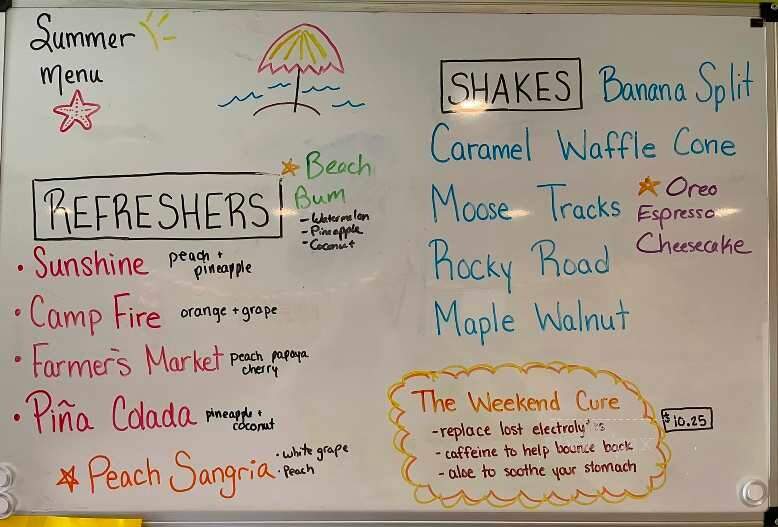 Summer
Menu
REFRESHERS
Beach
Bum
- Watermelon
- Pineapple
- Coconut
• Sunshine peach +
pineapple
• Camp Fire orange + grape
• Farmer's Market peach papaya
cherry
• Piña Colada pineapple +
coconut
Peach Sangria • white grape
• Peach
SHAKES Banana Split
Caramel Waffle Cone
Moose Tracks
Oreo
Espresso
Cheesecake
Rocky Road
Maple Walnut
The Weekend Cure
- replace lost
- caffeine to help bounce back
- aloe to soothe your stomach
$10.25